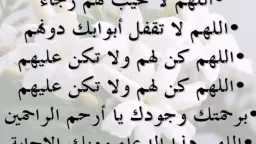 اللهم لا تخيب لهم رجاء
•اللهم لا تقفل أبوابك دونهم
•اللهم كن لهم ولا تكن عليهم
•اللهم كن لهم ولا تكن عليهم
•برحمتك وجودك يا أرحم الراحمين
•اللهم هذا الدعاء ومنك الإجابة